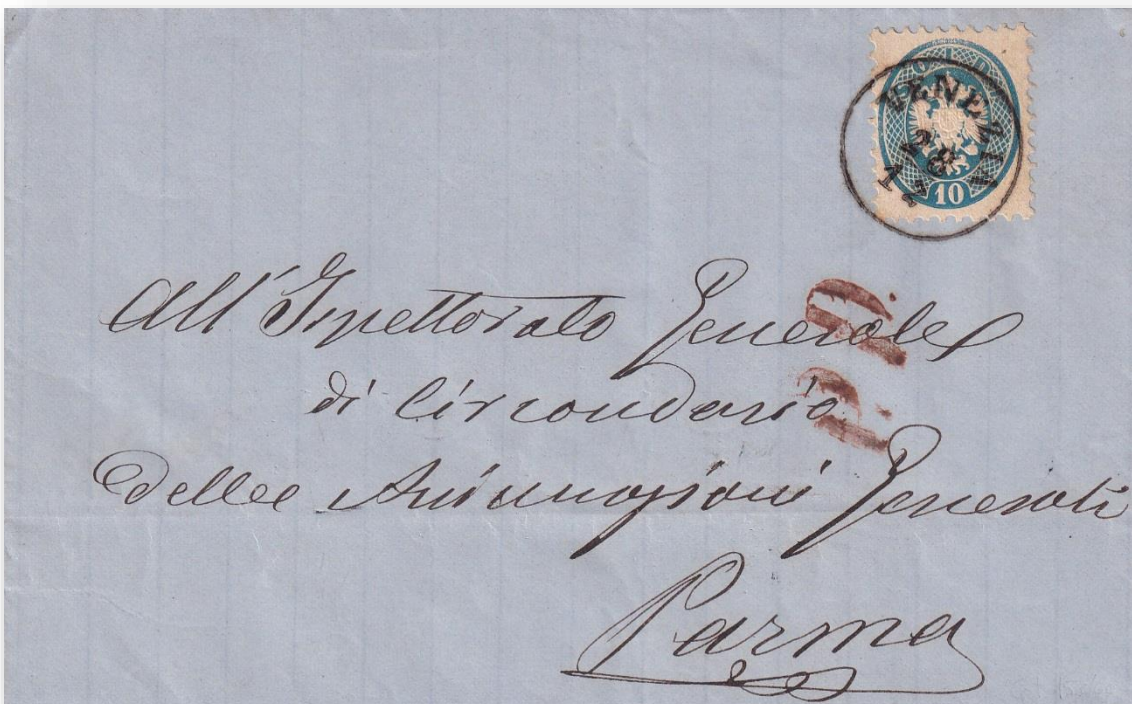 SOLDI
VENEZIA
28
12
10
P.D.
All' Ispettorato Generale
di Circondario
delle Assicurazioni Generali
Parma